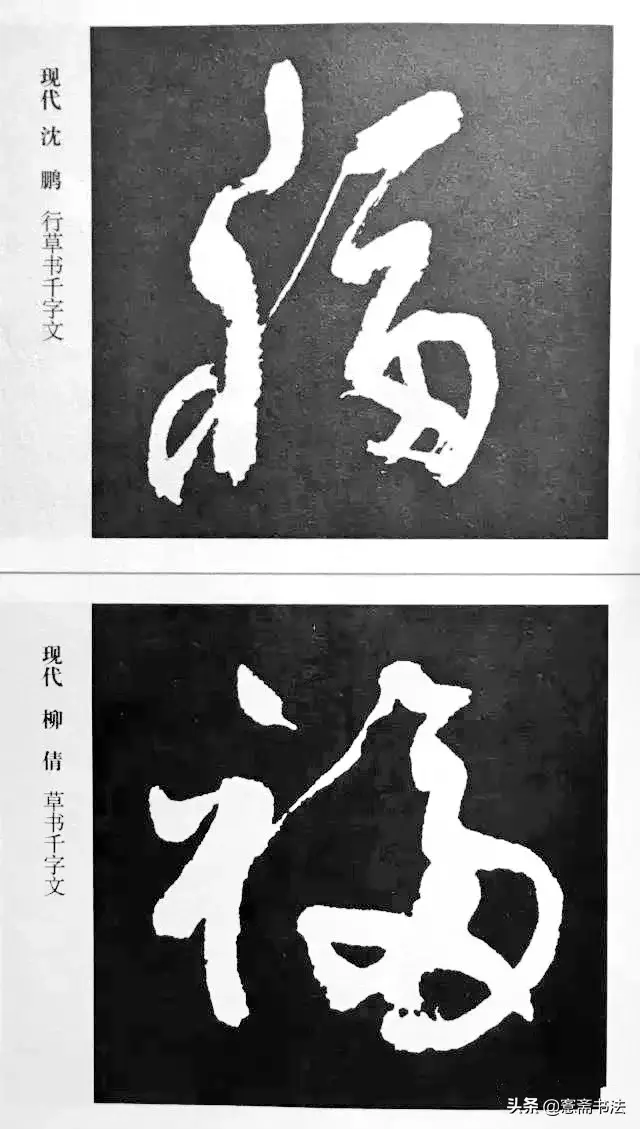 现代 沈鹏 行草书千字文
福
现代 柳倩 草书千字文
福
头条 @愙斋书法